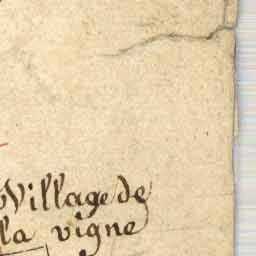 Village de
la vigne